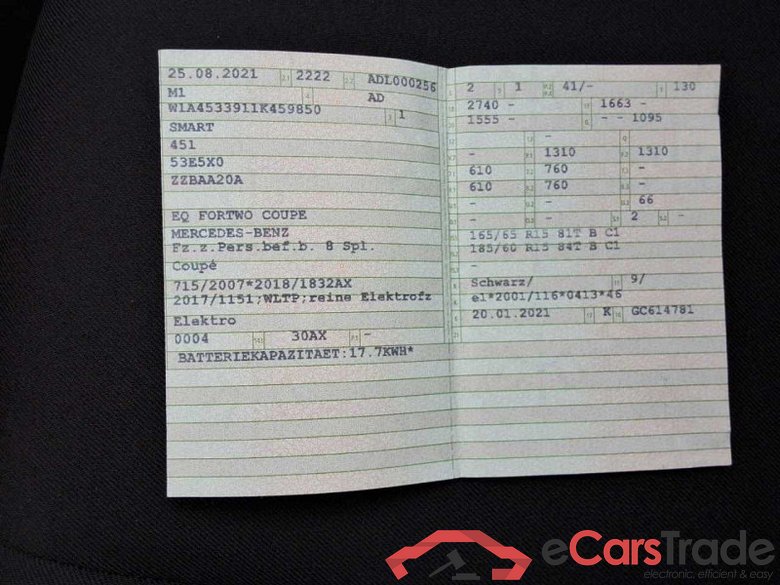 25.08.2021 2.1 2222 2.2 ADL000256
M1 AD
W1A4533911K459850 3 1
SMART
451
53E5X0
ZZBAA20A
EQ FORTWO COUPE
MERCEDES-BENZ
Fz.z.Pers.bef.b. 8 Spl.
Coupé
715/2007*2018/1832AX
2017/1151;WLTP;reine Elektrofz
Elektro
0004 30AX -
BATTERIEKAPAZITAET:17.7KWH*
2 1 41/- 130
2740 - 1663 -
1555 - - - 1095
- -
- 1310 1310
610 760 -
610 760 -
- - 66
- - 2 -
165/65 R15 81T B C1
185/60 R15 84T B C1
-
Schwarz/ 9/
e1*2001/116*0413*46
20.01.2021 K GC614781
eCarsTrade
electronic, efficient & easy